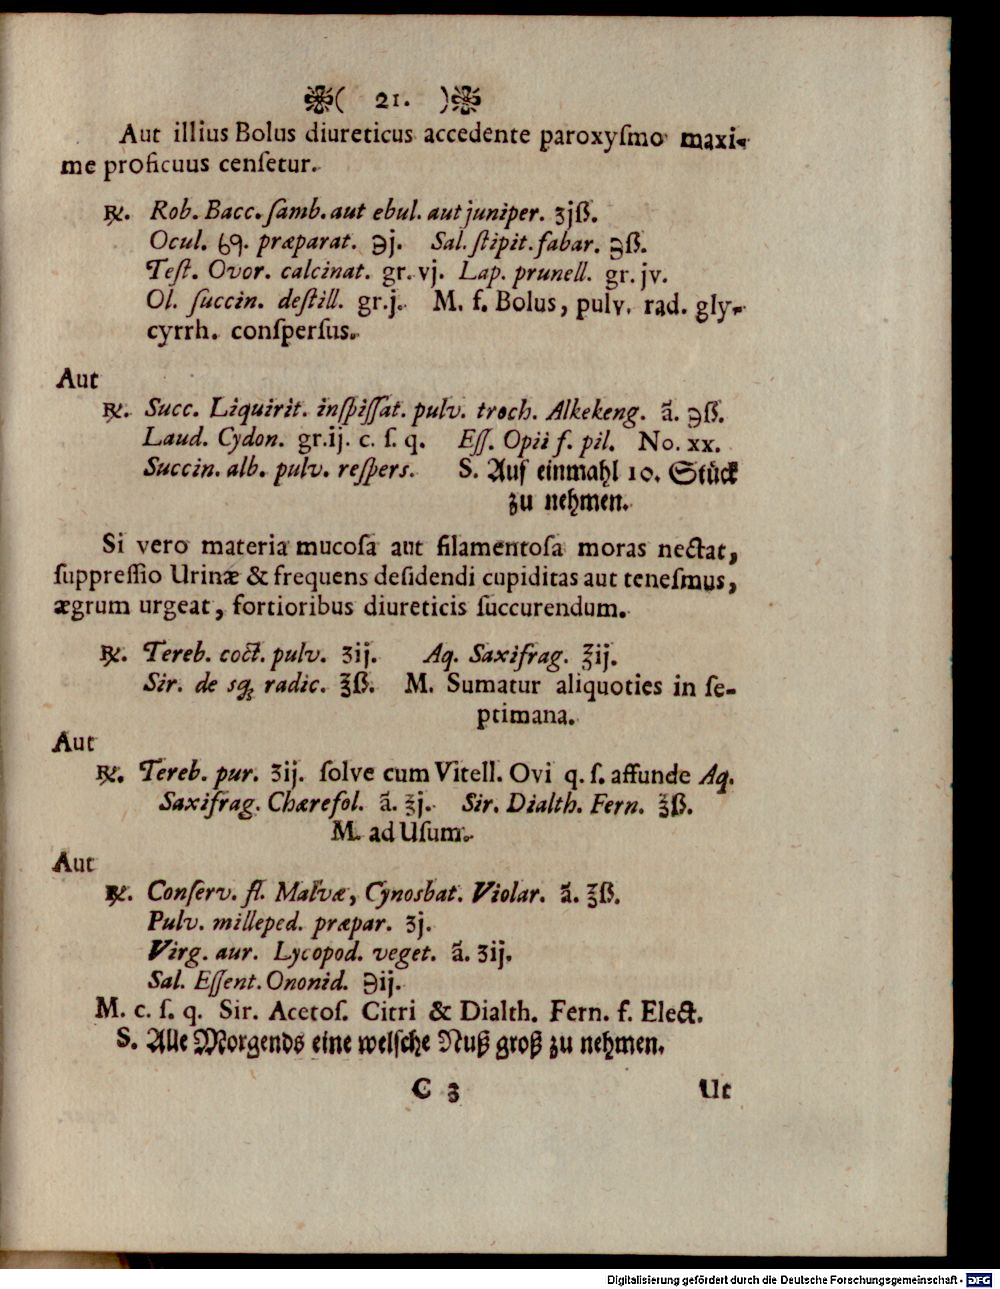 ❃( 21. )❃
Aut illius Bolus diureticus accedente paroxyſmo maxi-
me proficuus cenſetur.
℞. Rob. Bacc. ſamb. aut ebul. aut juniper. ʒjß.
Ocul. 69. præparat. ℈j. Sal. ſtipit. fabar. ℈ß.
Teſt. Ovor. calcinat. gr. vj. Lap. prunell. gr. jv.
Ol. ſuccin. deſtill. gr. j. M. f. Bolus, pulv. rad. gly-
cyrrh. conſperſus.
Aut
℞. Succ. Liquirit. inſpiſſat. pulv. troch. Alkekeng. ã. ℈ß.
Laud. Cydon. gr. ij. c. ſ. q. Eſſ. Opii f. pil. No. xx.
Succin. alb. pulv. reſpers. S. Auf einmahl 10. Stück
zu nehmen.
Si vero materia mucoſa aut filamentoſa moras nectat,
ſuppreſſio Urinæ & frequens deſidendi cupiditas aut teneſmus,
ægrum urgeat, fortioribus diureticis ſuccurendum.
℞. Tereb. coct. pulv. ʒij. Aq. Saxifrag. ℥ij.
Sir. de 5q; radic. ℥ß. M. Sumatur aliquoties in ſe-
ptimana.
Aut
℞. Tereb. pur. ʒij. ſolve cum Vitell. Ovi q. ſ. affunde Aq.
Saxifrag. Chærefol. ã. ℥j. Sir. Dialth. Fern. ℥ß.
M. ad Uſum.
Aut
℞. Conſerv. fl. Malvæ, Cynosbat. Violar. ã. ℥ß.
Pulv. milleped. præpar. ʒj.
Virg. aur. Lycopod. veget. ã. ʒij.
Sal. Eſſent. Ononid. ℈ij.
M. c. ſ. q. Sir. Acetoſ. Citri & Dialth. Fern. f. Elect.
S. Alle Morgends eine welſche Nuß groß zu nehmen.
C 3 Ut
Digitalisierung gefördert durch die Deutsche Forschungsgemeinschaft - DFG